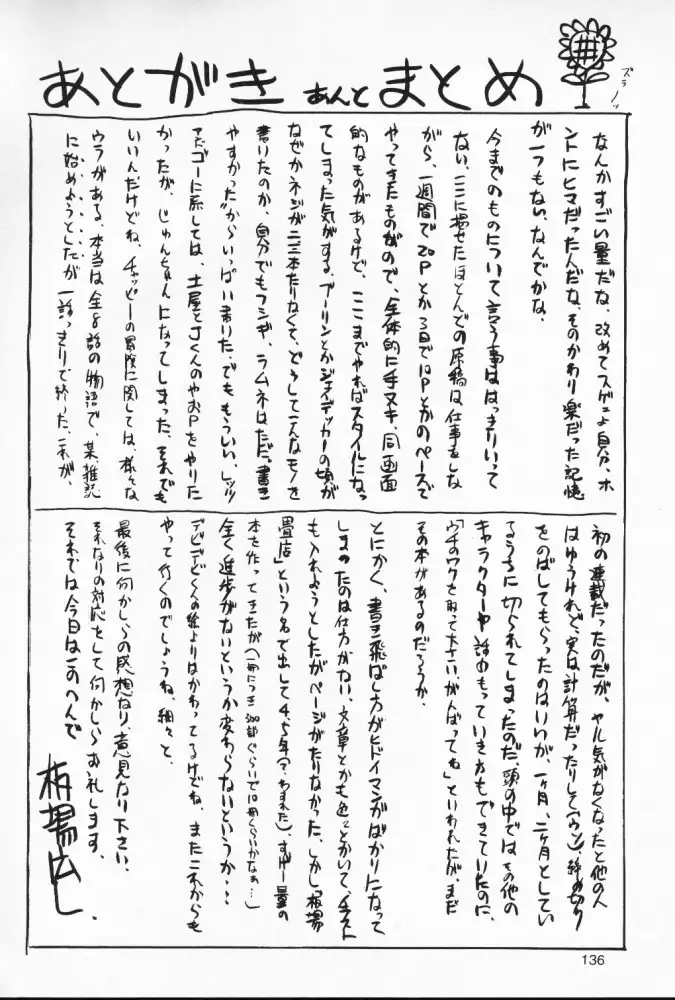 あとがき あんど まとめ
ズラノッ
なんかすごい量だな、改めてスゲェよ自分、ホ
ントにヒマだった人だな、そのかわり楽だった記憶
が一つもない、なんでかな、
今までのものについて言う事ははっきりいって
ない、ここに揚せたほとんどの原稿は仕事をしな
がら、一週間で20Pとか3日で12Pとかのペースで
やってきたものなので、全体的に手ヌキ、同画面
的なものがあるけど、ここまでやればスタイルになっ
てしまった気がする、プーリンとかジェイデッカーの頃が
なぜかネジが二三本たりなくて、どうしてこんなモノを
書けたのか、自分でもフシギ、ラムネはただ"書き
やすかった"からいっぱい書いた、でももういい、レッツ
&ゴーに系しては、土屋とJくんのやおPをやりた
かったが、じゅんちゃんになってしまった、それでも
いいんだけどね、チャッピーの冒険に関しては、様々な
ウラがある、本当は全8話の物語で、某、雑誌
に始めようとしたが一話っきりで終った、これが、
初の連載だったのだが、ヤル気がなくなったと他の人
はゆうけれど、実は計算だったりして(ウソ)、締め切り
をのばしてもらったのはいいが、一ヶ月、二ヶ月としてい
るうちに切られてしまったのだ、頭の中ではその他の
キャラクターや話のもっていき方もできていたのに、
「ウチのワクを取って下さい、がんばってね」といわれたが、まだ
その本があるのだろうか、
とにかく、書き飛ばし方がヒドイマンガばかりになって
しまったのは仕方がない、文章とかも色々とかいて、イラスト
も入れようとしたがページがたりなかった、しかし「板場
畳店」という名で出して4、5年(?わすれた)、すげー量の
本を作ってきたが(一冊につき300部ぐらいで10冊くらいかなぁ…)
全く進歩がないというか変わらないというか・・
デビデビくんの絵よりはかわってるけどね、またこれからも
やって行くのでしょうね、細々と、
最後に何かしらの感想なり、意見なり下さい、
それなりの対応をして何かしらお礼します、
それでは今日はこのへんで
板場広し、
136